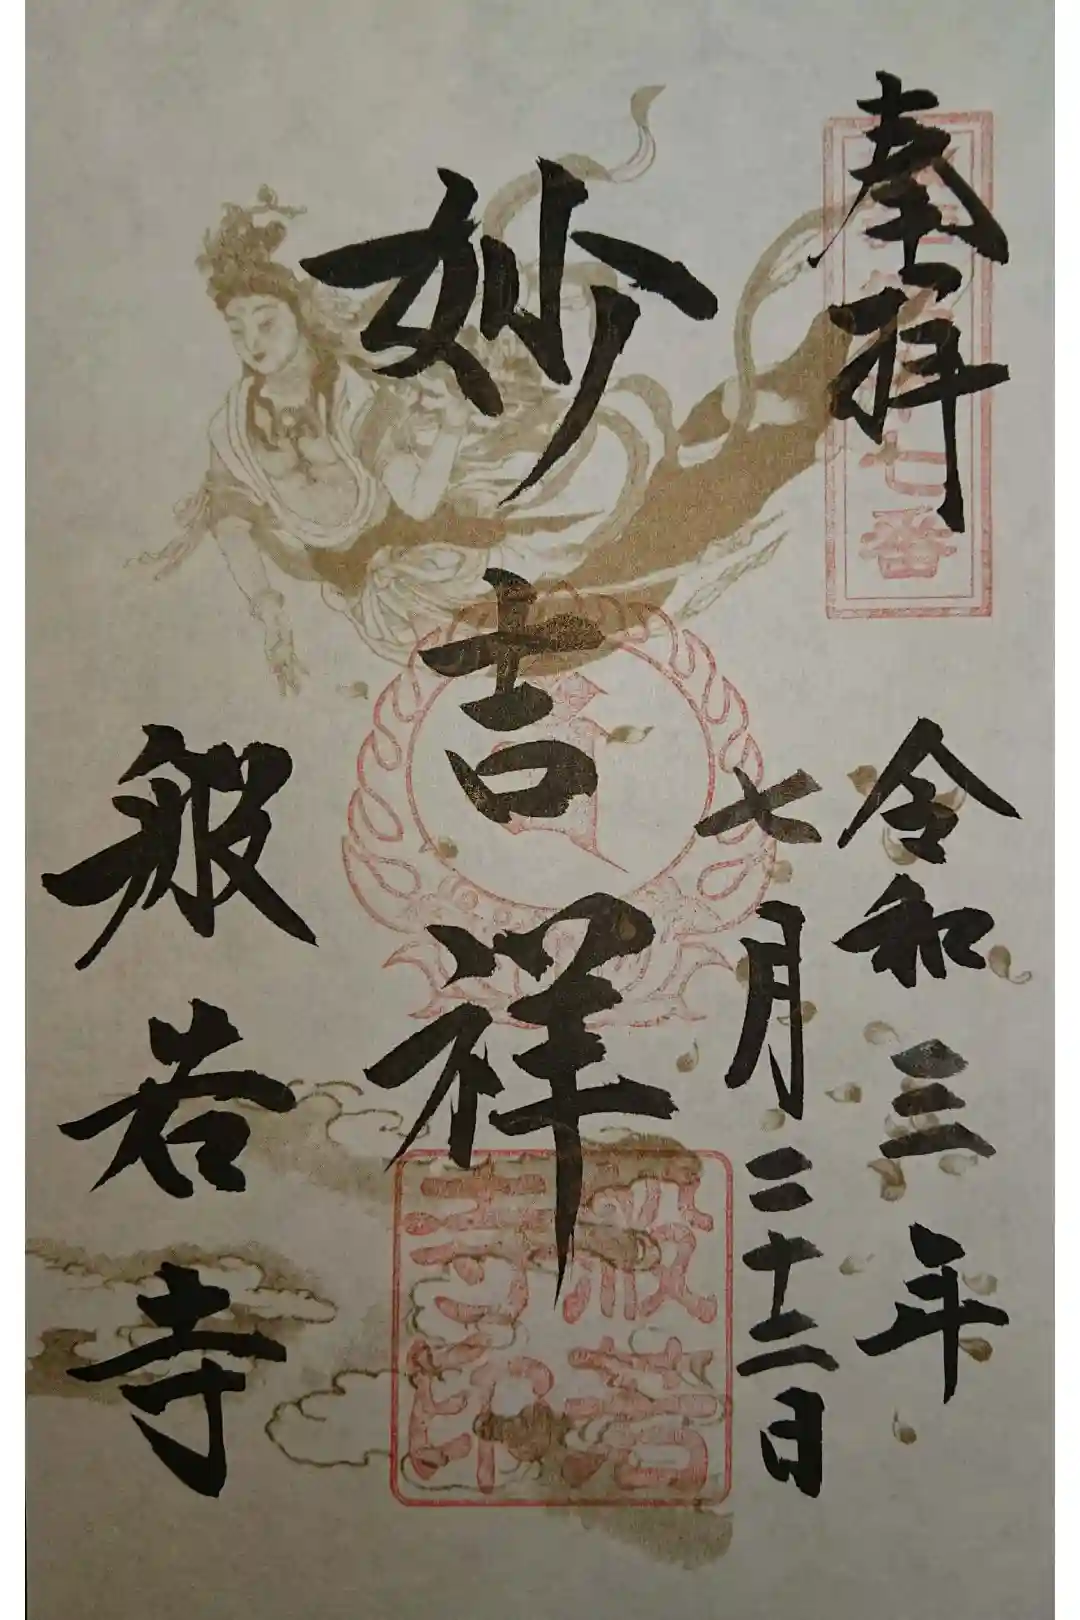 奉拝
七番
令和三年
七月二十二日
妙吉祥
般若
寺印
般若寺